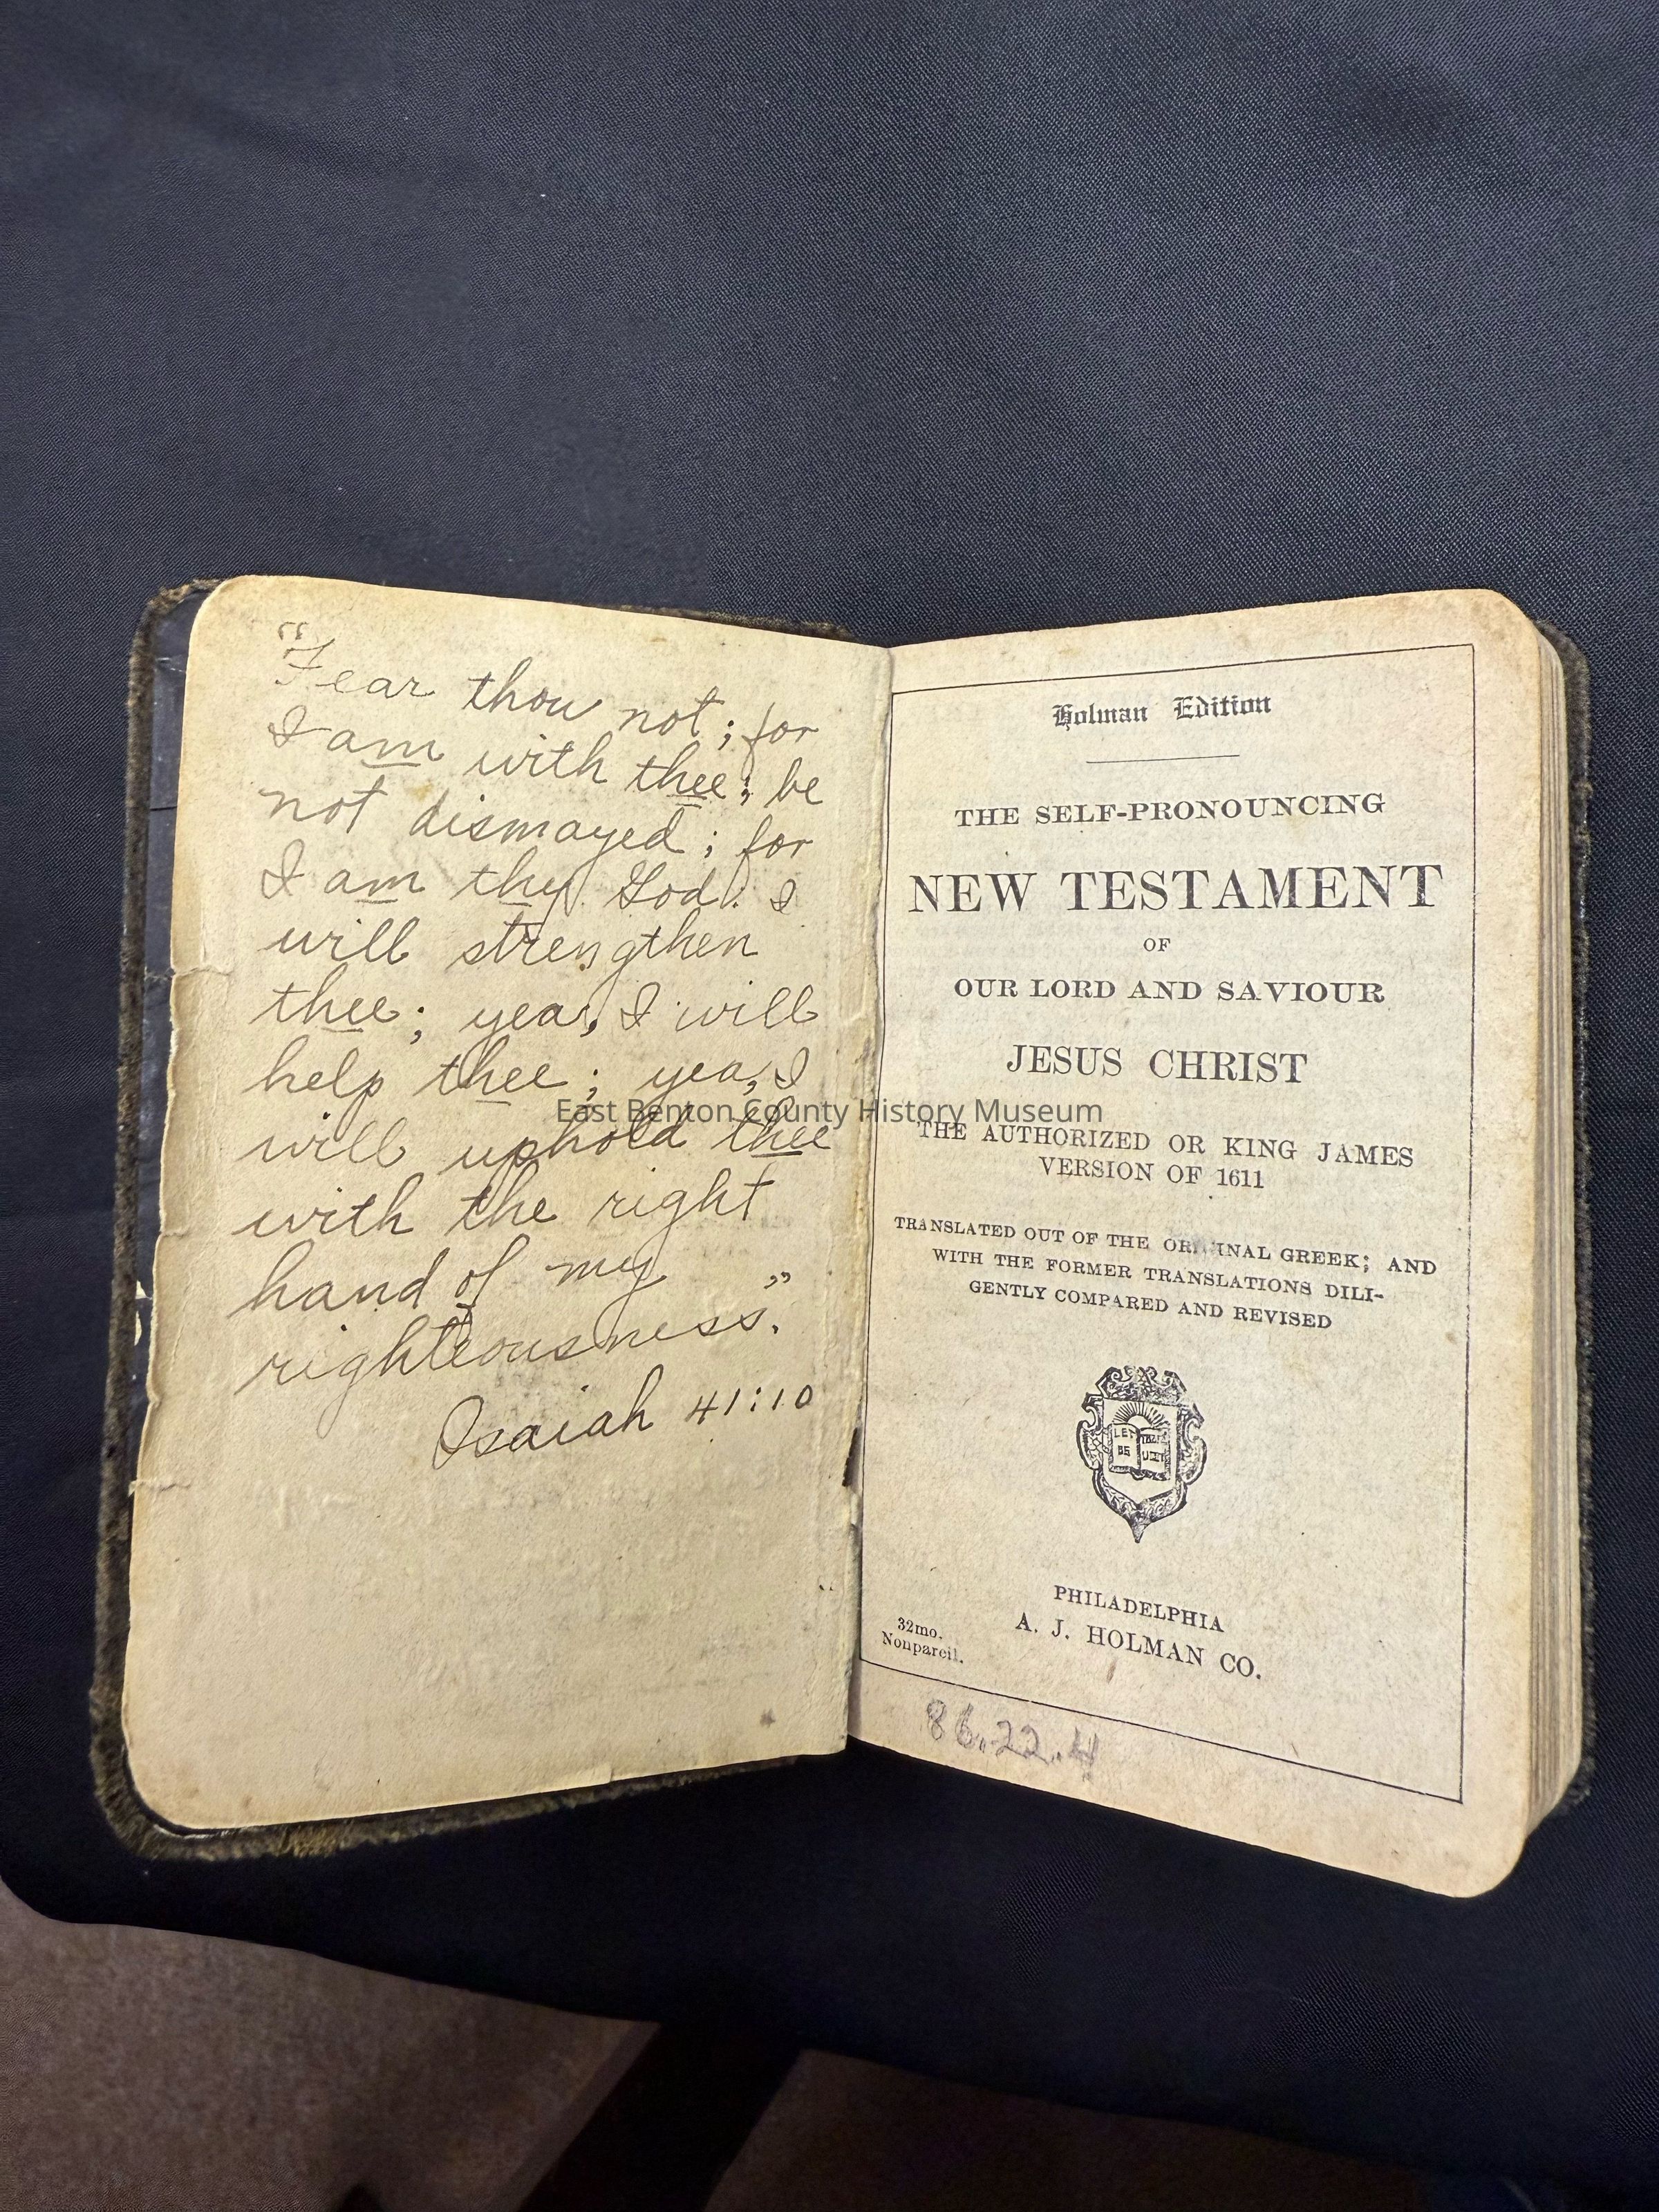 "Fear thou not; for
I am with thee; be
not dismayed; for
I am thy God: I
will strengthen
thee; yea, I will
help thee; yea, I
will uphold thee
with the right
hand of my
righteousness."
Isaiah 41:10
Holman Edition
THE SELF-PRONOUNCING
NEW TESTAMENT
OF
OUR LORD AND SAVIOUR
JESUS CHRIST
THE AUTHORIZED OR KING JAMES
VERSION OF 1611
TRANSLATED OUT OF THE ORIGINAL GREEK; AND
WITH THE FORMER TRANSLATIONS DILI-
GENTLY COMPARED AND REVISED
LET
BE
PHILADELPHIA
A. J. HOLMAN CO.
32mo.
Nonpareil.
86.22.4
East Benton County History Museum